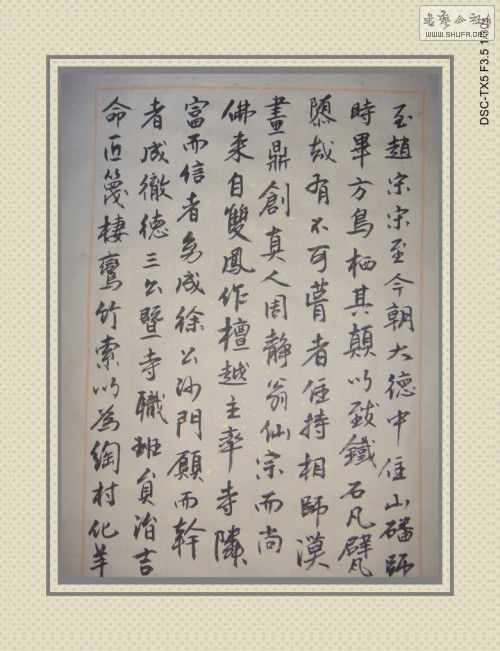 至趙宗宋至今朝大德中住山磻師
時畢方鳥栖其顛以致鐵石凡甓瓦
隳哉有不可葺者住持相師漠
畫鼎創真人周靜翁仙宗而尚
佛来自雙鳳作檀越主率寺隣
富而信者多成徐公沙門願而幹
者成徹德三公暨寺職班員涓吉
命匠篾棲鸞竹索以為綯村化羊
書藝公社
WWW.SHUFA.ORG
DSC-TX5 F3.5